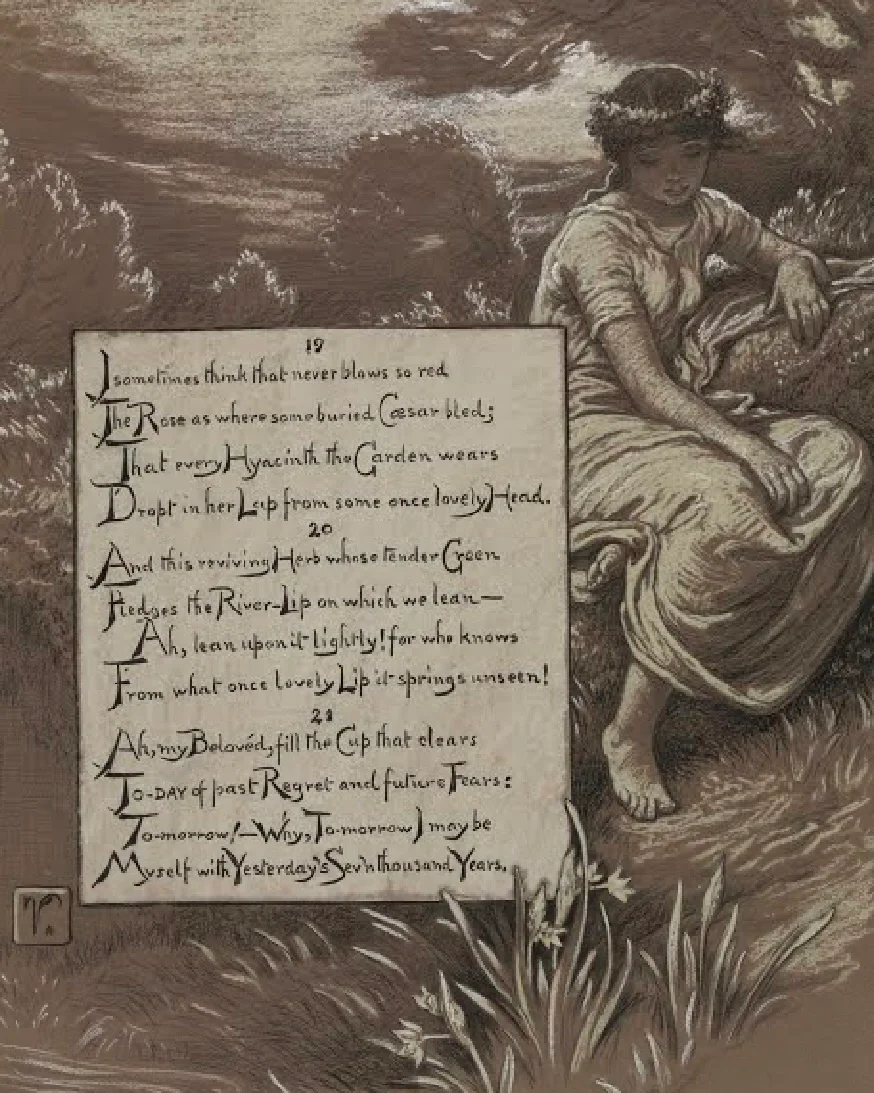 19
I sometimes think that never blows so red
The Rose as where some buried Cæsar bled;
That every Hyacinth the Garden wears
Dropt in her Lap from some once lovely Head.
20
And this reviving Herb whose tender Green
Fledges the River-Lip on which we lean—
Ah, lean upon it lightly! for who knows
From what once lovely Lip it springs unseen!
21
Ah, my Belovéd, fill the Cup that clears
TO-DAY of past Regret and future Fears:
To-morrow!—Why, To-morrow I may be
Myself with Yesterday's Sev'n thousand Years.